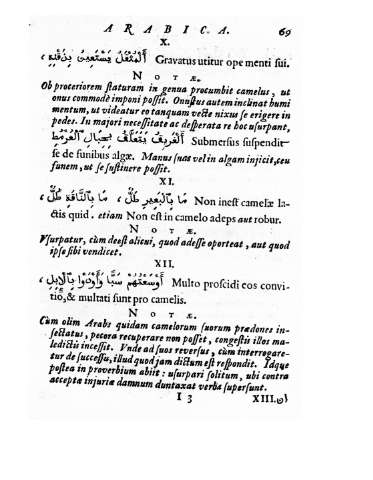 ARABICA. 69
X.
أَلْمُثْقَلُ يَسْتَعِينُ بِذَقَنِهِ ، Gravatus utitur ope menti sui.
NOTÆ.
Ob proceriorem staturam in genua procumbit camelus, ut
onus commodè imponi possit. Onustus autem inclinat humi
mentum, ut videatur eo tanquam vecte nixus se erigere in
pedes. In majori necessitate ac desperata re hoc usurpant,
أَلْغَرِيقُ يَتَعَلَّقُ بِحِبَالِ Submersus suspendit
se de funibus algæ. Manus suas vel in algam injicit, ceu
funem, ut se sustinere possit.
XI.
مَا بِٱلْبَعِيرِ طُلٌّ ، مَا بِٱلنَّاقَةِ طُلٌّ ، Non inest camelæ la-
ctis quid. etiam Non est in camelo adeps aut robur.
NOTÆ.
Usurpatur, cùm deest alicui, quod adesse oporteat, aut quod
ipse sibi vendicet.
XII.
أَوْسَعْتُهُمْ سَبًّا وَأَوْدَوْا بِٱلْإِبِلِ ، Multo proscidi eos convi-
tio, & multati sunt pro camelis.
NOTÆ.
Cùm olim Arabs quidam camelorum suorum prædones in-
sectatus, pecora recuperare non posset, congestis illos ma-
ledictis incessit. Unde ad suos reversus, cùm interrogare-
tur de successu, illud quod jam dictum est respondit. Idque
postea in proverbium abiit: usurpari solitum, ubi contra
acceptæ injuriæ damnum duntaxat verba supersunt.
I 3 XIII.